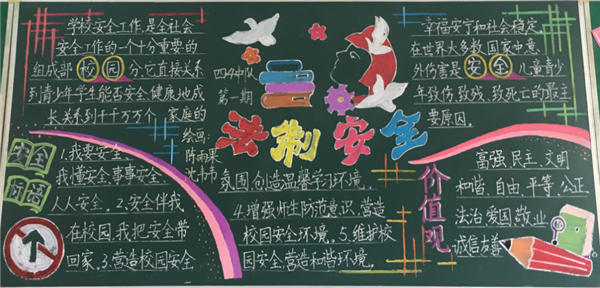 学校安全工作,是全社会
安全工作的一个十分重要的
组成部 校园 分,它直接关系
到青少年学生能否安全、健康地成
长,关系到千千万万个 家庭的
幸福安宁和社会稳定。
在世界大多数国家中,意
外伤害是 安全 儿童青少
年致伤、致残、致死亡的最主
要原因。
四4中队
第一期
绘画:
陈雨果
法制安全
安全
标语
1.我要安全、
我懂安全、事事安全、
人人安全。2.安全伴我
在校园,我把安全带
回家。3.营造校园安全
氛围,创造温馨学习环境。
4.增强师生防范意识,营造
校园安全环境。5.维护校
园安全,营造和谐环境。
价值观
富强、民主、文明
和谐、自由、平等、公正、
法治、爱国、敬业、
诚信、友善